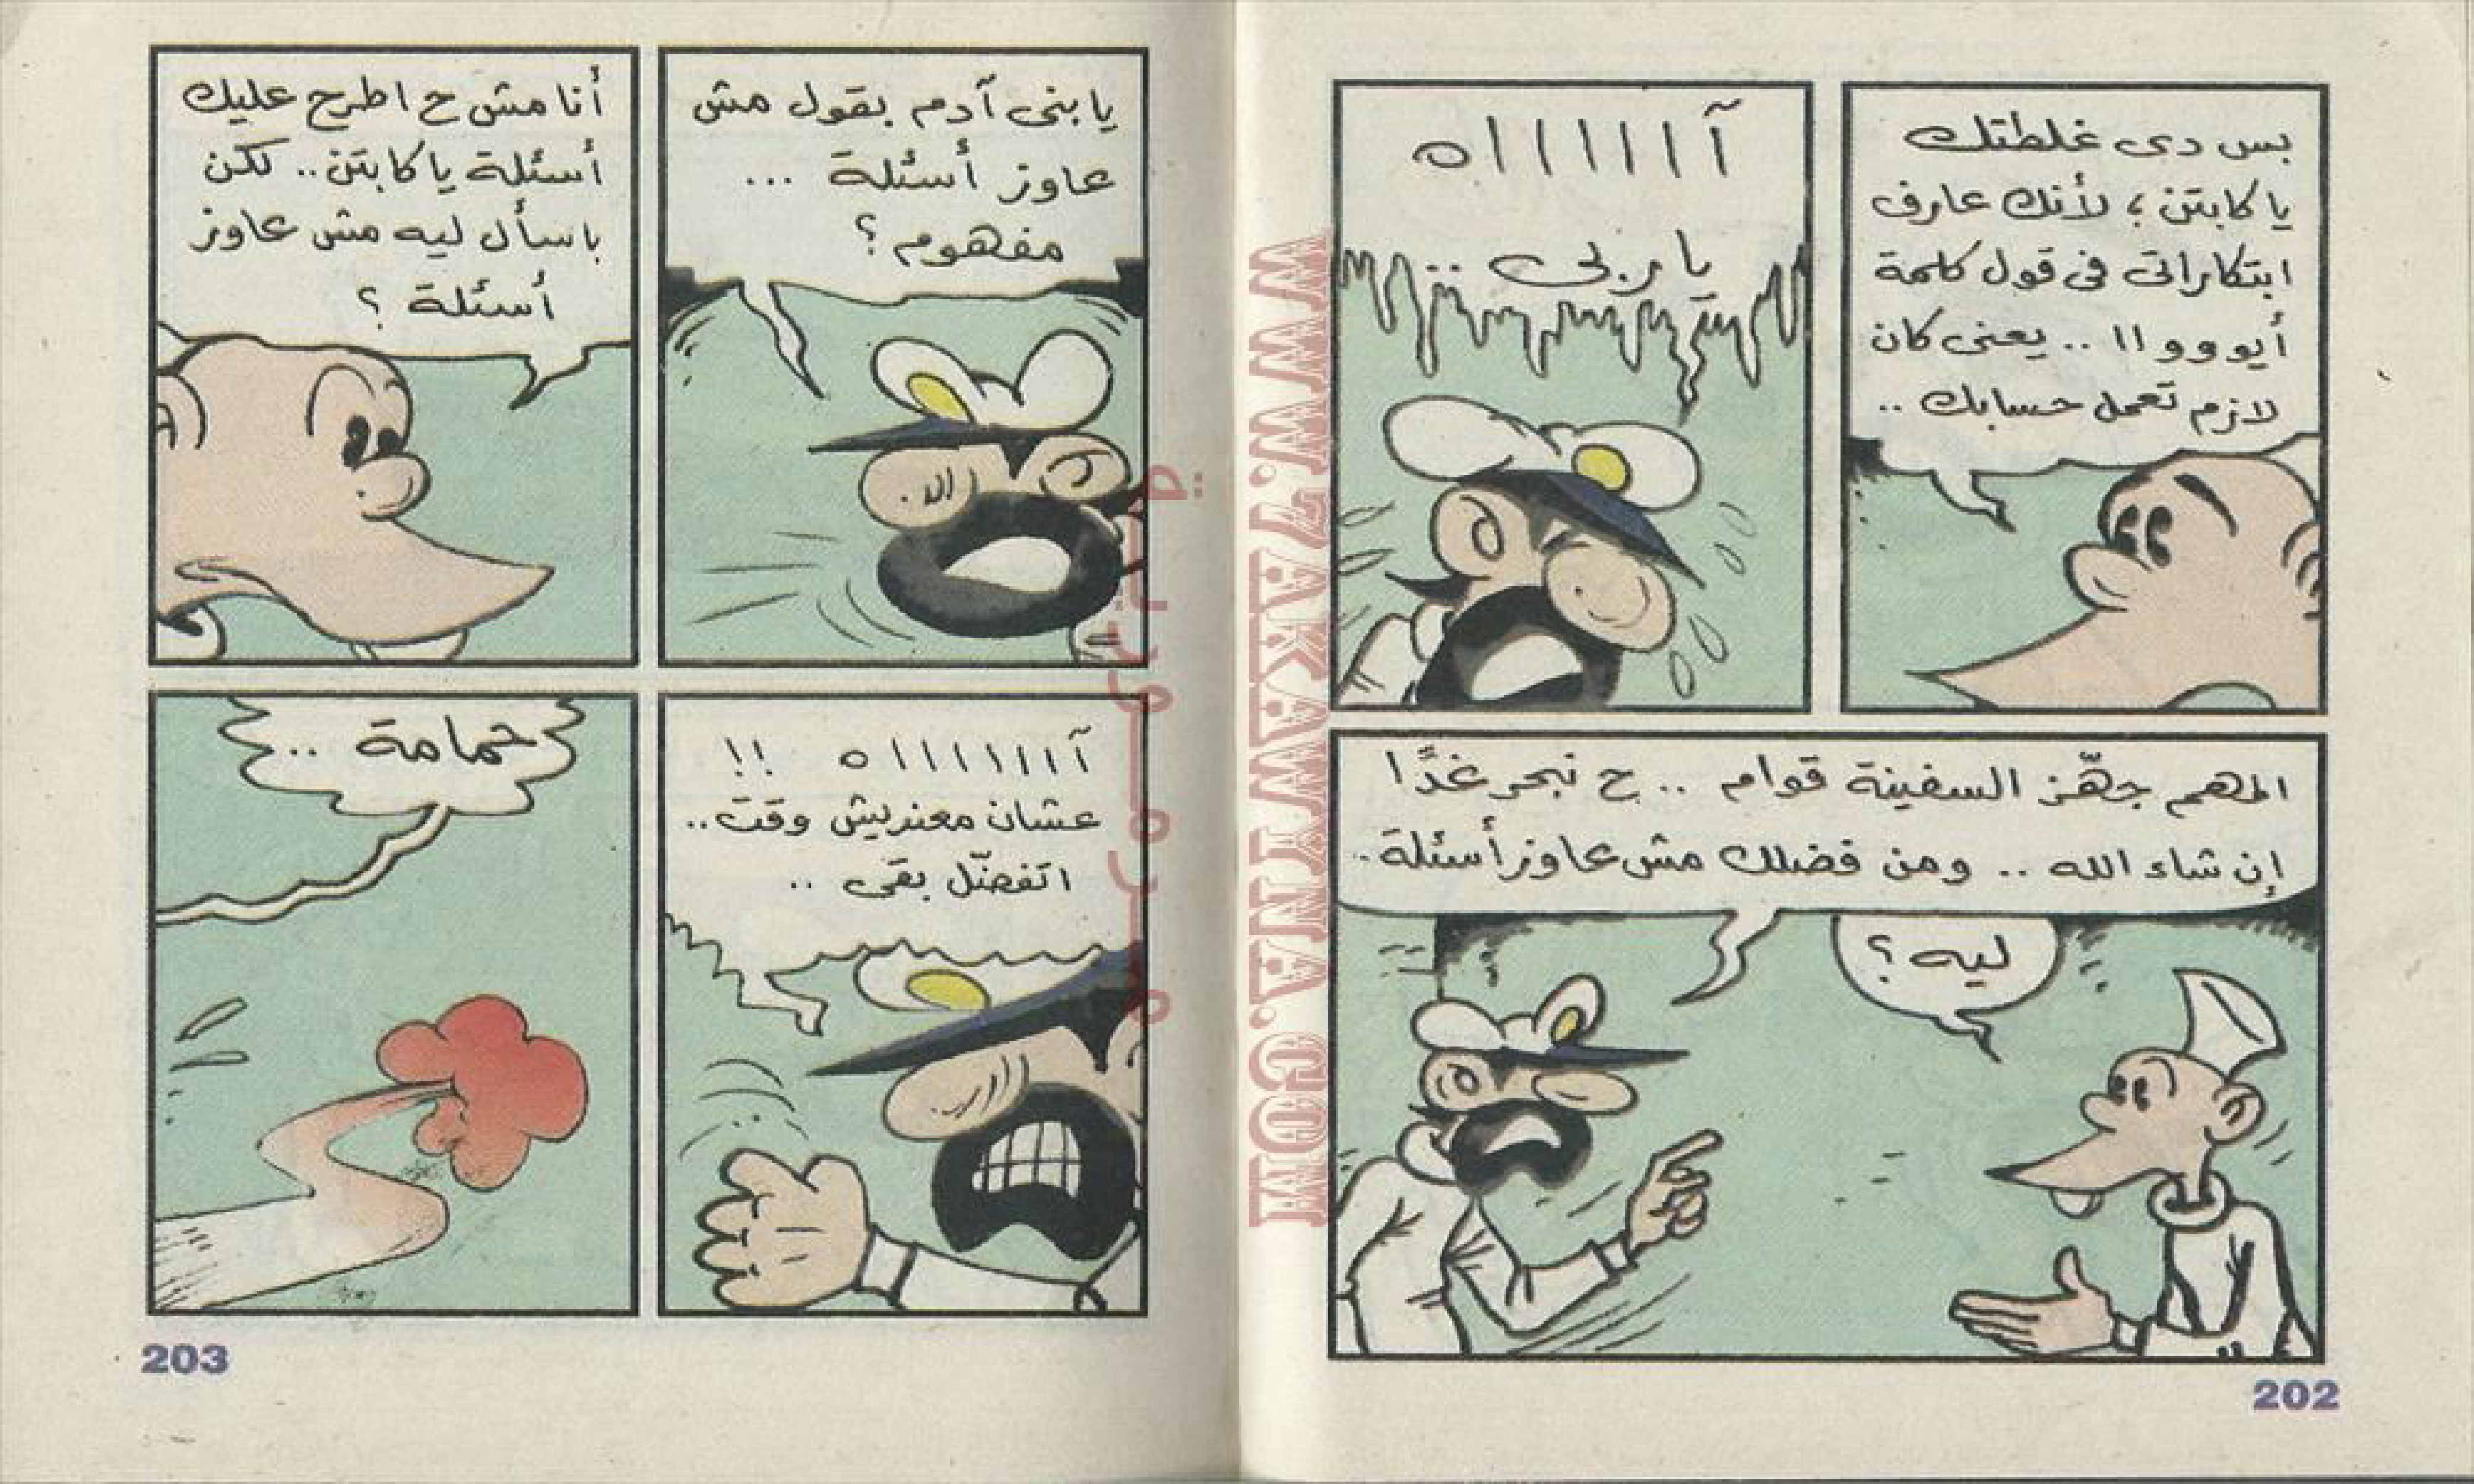 بس دى غلطتك
يا كابتن ؛ لأنك عارف
ابتكاراتى فى قول كلمة
أيوووااا .. يعنى كان
لازم تعمل حسابك ..
آااااااه
يا ربى ..
المهم جهّز السفينة قوام .. ح نبحر غدًا
إن شاء الله .. ومن فضلك مش عاوز أسئلة ..
ليه ؟
202
يا بنى آدم بقول مش
عاوز أسئلة ...
مفهوم ؟
أنا مش ح اطرح عليك
أسئلة يا كابتن .. لكن
باسأل ليه مش عاوز
أسئلة ؟
آاااااااه !!
عشان معنديش وقت ..
اتفضّل بقى ..
حمامة ..
203